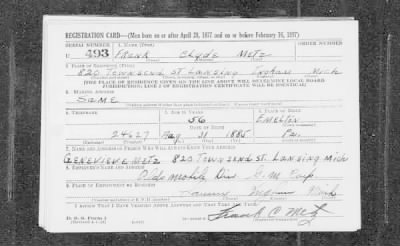 REGISTRATION CARD—(Men born on or after April 28, 1877 and on or before February 16, 1897)
SERIAL NUMBER 1. NAME (Print) ORDER NUMBER
U 493 Frank Clyde Metz
2. PLACE OF RESIDENCE (Print)
820 Townsend St Lansing Ingham Mich
(THE PLACE OF RESIDENCE GIVEN ON THE LINE ABOVE WILL DETERMINE LOCAL BOARD
JURISDICTION; LINE 2 OF REGISTRATION CERTIFICATE WILL BE IDENTICAL)
3. MAILING ADDRESS
Same
4. TELEPHONE 5. AGE IN YEARS 6. PLACE OF BIRTH
56 Emelton
DATE OF BIRTH
24627 Aug. 31 1885 Pa.
7. NAME AND ADDRESS OF PERSON WHO WILL ALWAYS KNOW YOUR ADDRESS
Genevieve Metz 820 Townsend St. Lansing Mich
8. EMPLOYER'S NAME AND ADDRESS
Oldsmobile Div G.M. Corp
9. PLACE OF EMPLOYMENT OR BUSINESS
Lansing Ingham Mich
I AFFIRM THAT I HAVE VERIFIED ABOVE ANSWERS AND THAT THEY ARE TRUE.
Frank C. Metz
D. S. S. Form 1